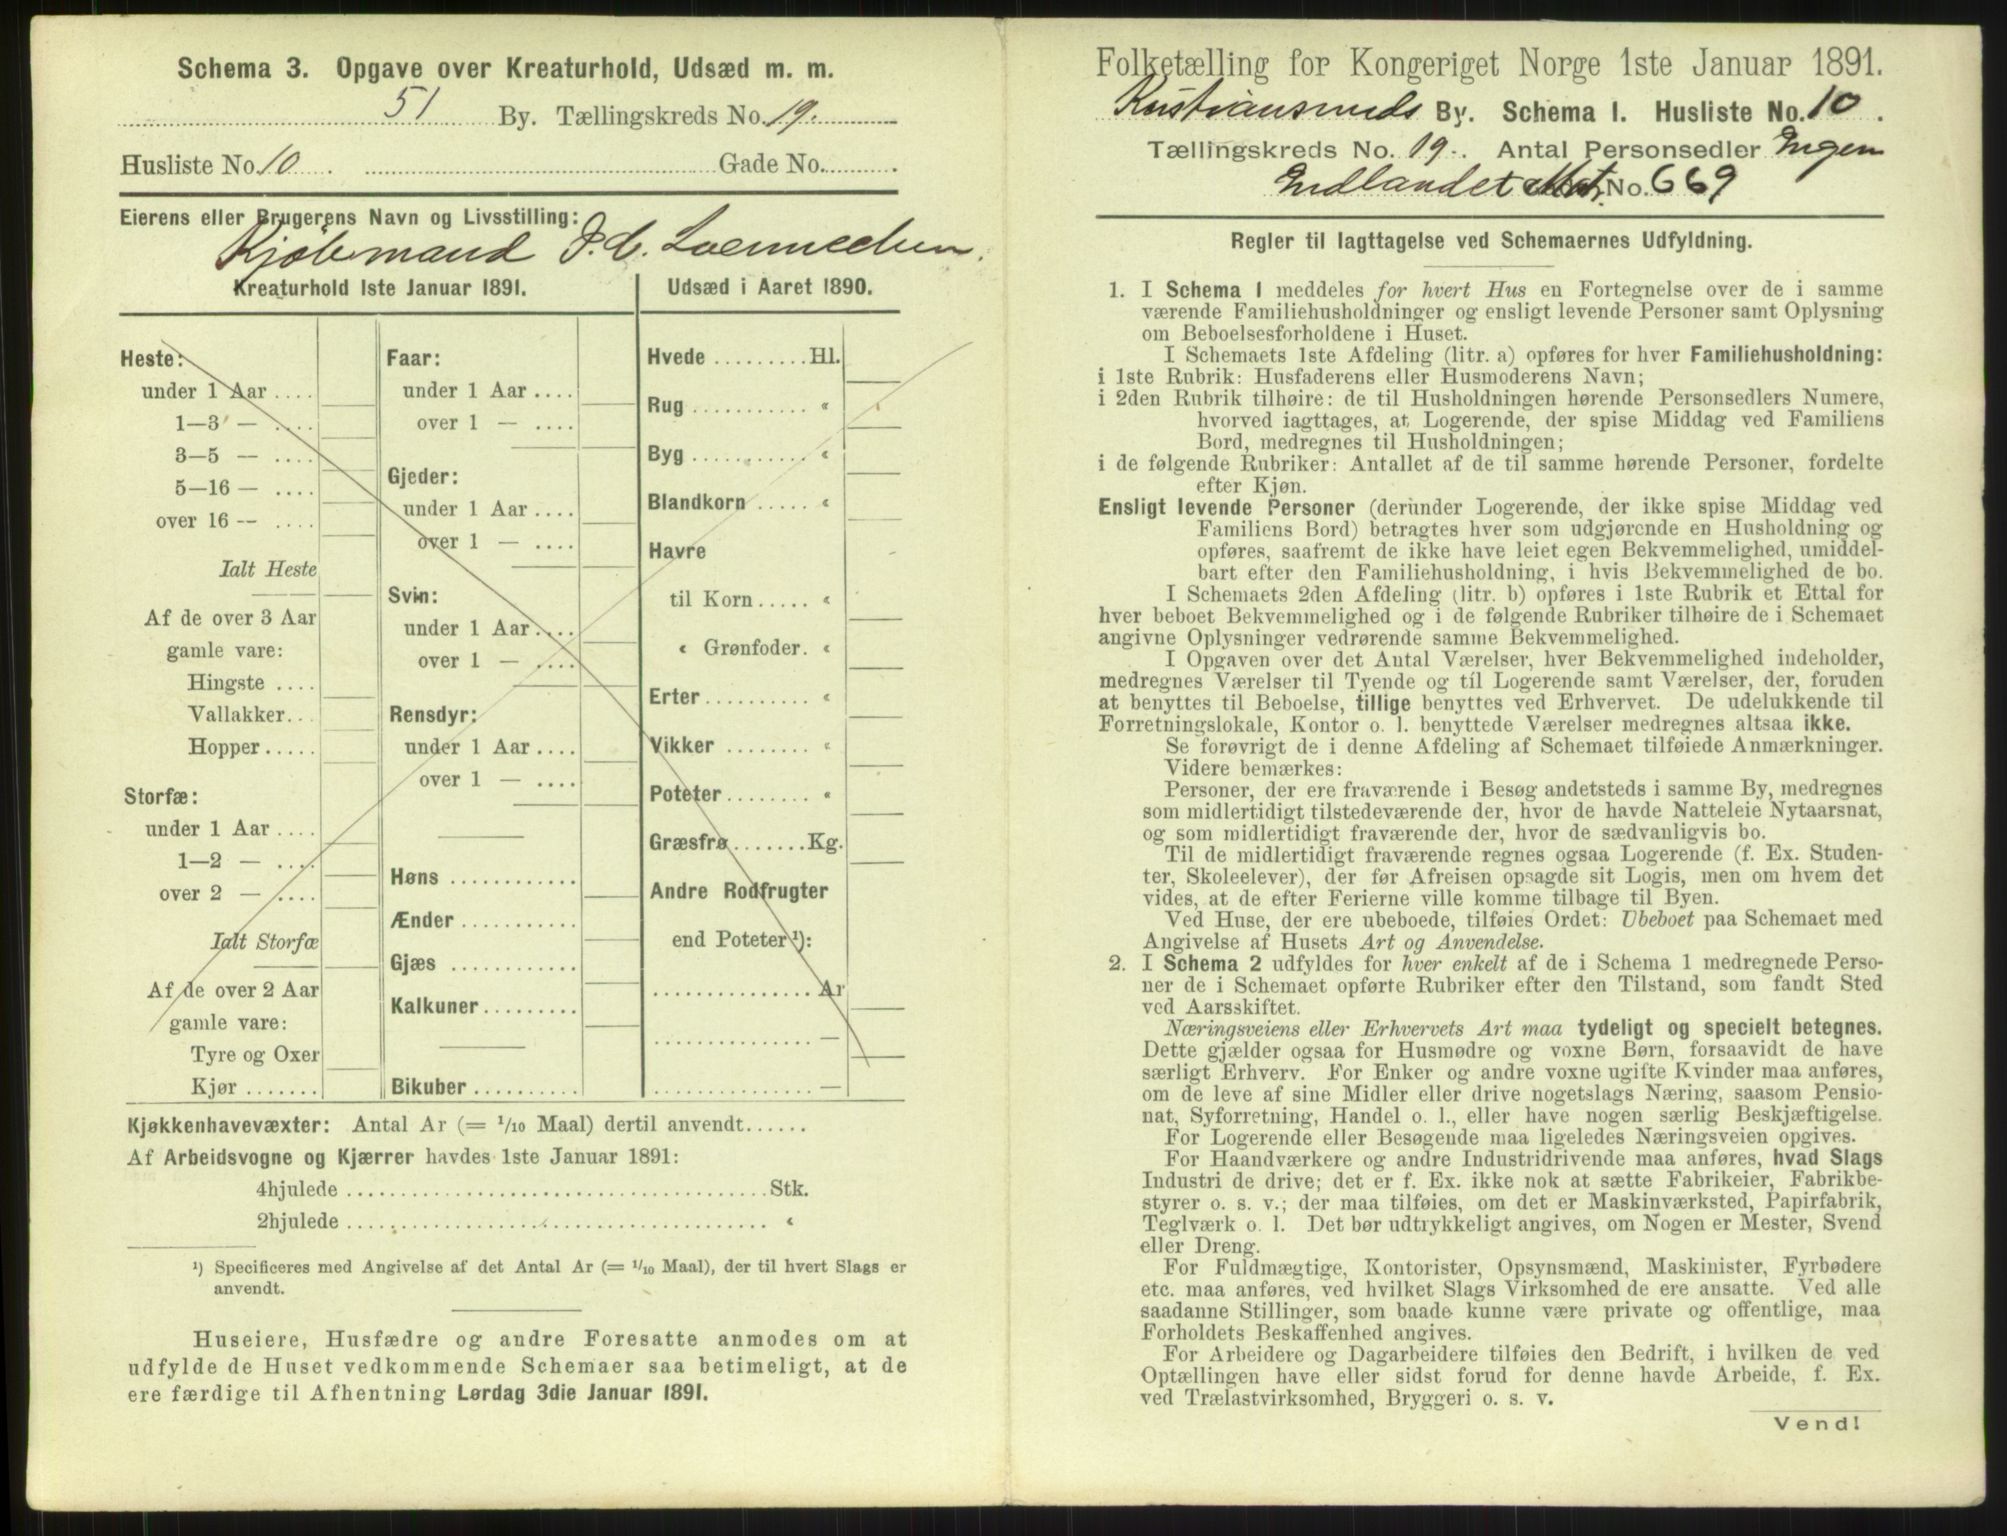 Schema 3. Opgave over Kreaturhold, Udsæd m. m.
51 By. Tællingskreds No. 19.
Husliste No. 10 Gade No.
Eierens eller Brugerens Navn og Livsstilling:
Kjöbmand J. C.
Kreaturhold 1ste Januar 1891.
Heste:
under 1 Aar ....
1—3 — ....
3—5 — ....
5—16 — ....
over 16 -- ....
Ialt Heste
Af de over 3 Aar
gamle vare:
Hingste ....
Vallakker...
Hopper .....
Storfæ:
under 1 Aar ....
1—2 — ....
over 2 — ....
Ialt Storfæ
Af de over 2 Aar
gamle vare:
Tyre og Oxer
Kjør .......
Faar:
under 1 Aar ....
over 1 — ....
Gjeder:
under 1 Aar ....
over 1 — ....
Svin:
under 1 Aar ....
over 1 — ....
Rensdyr:
under 1 Aar ....
over 1 — ....
Høns ............
Ænder ...........
Gjæs ............
Kalkuner.........
Bikuber ..........
Udsæd i Aaret 1890.
Hvede .........Hl.
Rug ........... «
Byg ........... «
Blandkorn ..... «
Havre
til Korn..... «
« Grønfoder. «
Erter.......... «
Vikker ........ «
Poteter........ «
Græsfrø.......Kg.
Andre Rodfrugter
end Poteter ¹):
............... Ar
............... —
............... —
Kjøkkenhavevæxter: Antal Ar (= 1/10 Maal) dertil anvendt......
Af Arbeidsvogne og Kjærrer havdes 1ste Januar 1891:
4hjulede ........................................Stk.
2hjulede ........................................ «
¹) Specificeres med Angivelse af det Antal Ar (= 1/10 Maal), der til hvert Slags er
anvendt.
Huseiere, Husfædre og andre Foresatte anmodes om at
udfylde de Huset vedkommende Schemaer saa betimeligt, at de
ere færdige til Afhentning Lørdag 3die Januar 1891.
Folketælling for Kongeriget Norge 1ste Januar 1891.
Kristiansunds By. Schema I. Husliste No. 10.
Tællingskreds No. 19. Antal Personsedler Ingen
Indlandet Mat. No. 669
Regler til Iagttagelse ved Schemaernes Udfyldning.
1. I Schema 1 meddeles for hvert Hus en Fortegnelse over de i samme
værende Familiehusholdninger og ensligt levende Personer samt Oplysning
om Beboelsesforholdene i Huset.
I Schemaets 1ste Afdeling (litr. a) opføres for hver Familiehusholdning:
i 1ste Rubrik: Husfaderens eller Husmoderens Navn;
i 2den Rubrik tilhøire: de til Husholdningen hørende Personsedlers Numere,
hvorved iagttages, at Logerende, der spise Middag ved Familiens
Bord, medregnes til Husholdningen;
i de følgende Rubriker: Antallet af de til samme hørende Personer, fordelte
efter Kjøn.
Ensligt levende Personer (derunder Logerende, der ikke spise Middag ved
Familiens Bord) betragtes hver som udgjørende en Husholdning og
opføres, saafremt de ikke have leiet egen Bekvemmelighed, umiddel-
bart efter den Familiehusholdning, i hvis Bekvemmelighed de bo.
I Schemaets 2den Afdeling (litr. b) opføres i 1ste Rubrik et Ettal for
hver beboet Bekvemmelighed og i de følgende Rubriker tilhøire de i Schemaet
angivne Oplysninger vedrørende samme Bekvemmelighed.
I Opgaven over det Antal Værelser, hver Bekvemmelighed indeholder,
medregnes Værelser til Tyende og til Logerende samt Værelser, der, foruden
at benyttes til Beboelse, tillige benyttes ved Erhvervet. De udelukkende til
Forretningslokale, Kontor o. l. benyttede Værelser medregnes altsaa ikke.
Se forøvrigt de i denne Afdeling af Schemaet tilføiede Anmærkninger.
Videre bemærkes:
Personer, der ere fraværende i Besøg andetsteds i samme By, medregnes
som midlertidigt tilstedeværende der, hvor de havde Natteleie Nytaarsnat,
og som midlertidigt fraværende der, hvor de sædvanligvis bo.
Til de midlertidigt fraværende regnes ogsaa Logerende (f. Ex. Studen-
ter, Skoleelever), der før Afreisen opsagde sit Logis, men om hvem det
vides, at de efter Ferierne ville komme tilbage til Byen.
Ved Huse, der ere ubeboede, tilføies Ordet: Ubeboet paa Schemaet med
Angivelse af Husets Art og Anvendelse.
2. I Schema 2 udfyldes for hver enkelt af de i Schema 1 medregnede Perso-
ner de i Schemaet opførte Rubriker efter den Tilstand, som fandt Sted
ved Aarsskiftet.
Næringsveiens eller Erhvervets Art maa tydeligt og specielt betegnes.
Dette gjælder ogsaa for Husmødre og voxne Børn, forsaavidt de have
særligt Erhverv. For Enker og andre voxne ugifte Kvinder maa anføres,
om de leve af sine Midler eller drive nogetslags Næring, saasom Pensio-
nat, Syforretning, Handel o. l., eller have nogen særlig Beskjæftigelse.
For Logerende eller Besøgende maa ligeledes Næringsveien opgives.
For Haandværkere og andre Industridrivende maa anføres, hvad Slags
Industri de drive; det er f. Ex. ikke nok at sætte Fabrikeier, Fabrikbe-
styrer o. s. v.; der maa tilføies, om det er Maskinværksted, Papirfabrik,
Teglværk o. l. Det bør udtrykkeligt angives, om Nogen er Mester, Svend
eller Dreng.
For Fuldmægtige, Kontorister, Opsynsmænd, Maskinister, Fyrbødere
etc. maa anføres, ved hvilket Slags Virksomhed de ere ansatte. Ved alle
saadanne Stillinger, som baade kunne være private og offentlige, maa
Forholdets Beskaffenhed angives.
For Arbeidere og Dagarbeidere tilføies den Bedrift, i hvilken de ved
Optællingen have eller sidst forud for denne havde Arbeide, f. Ex.
ved Trælastvirksomhed, Bryggeri o. s. v.
Vend!